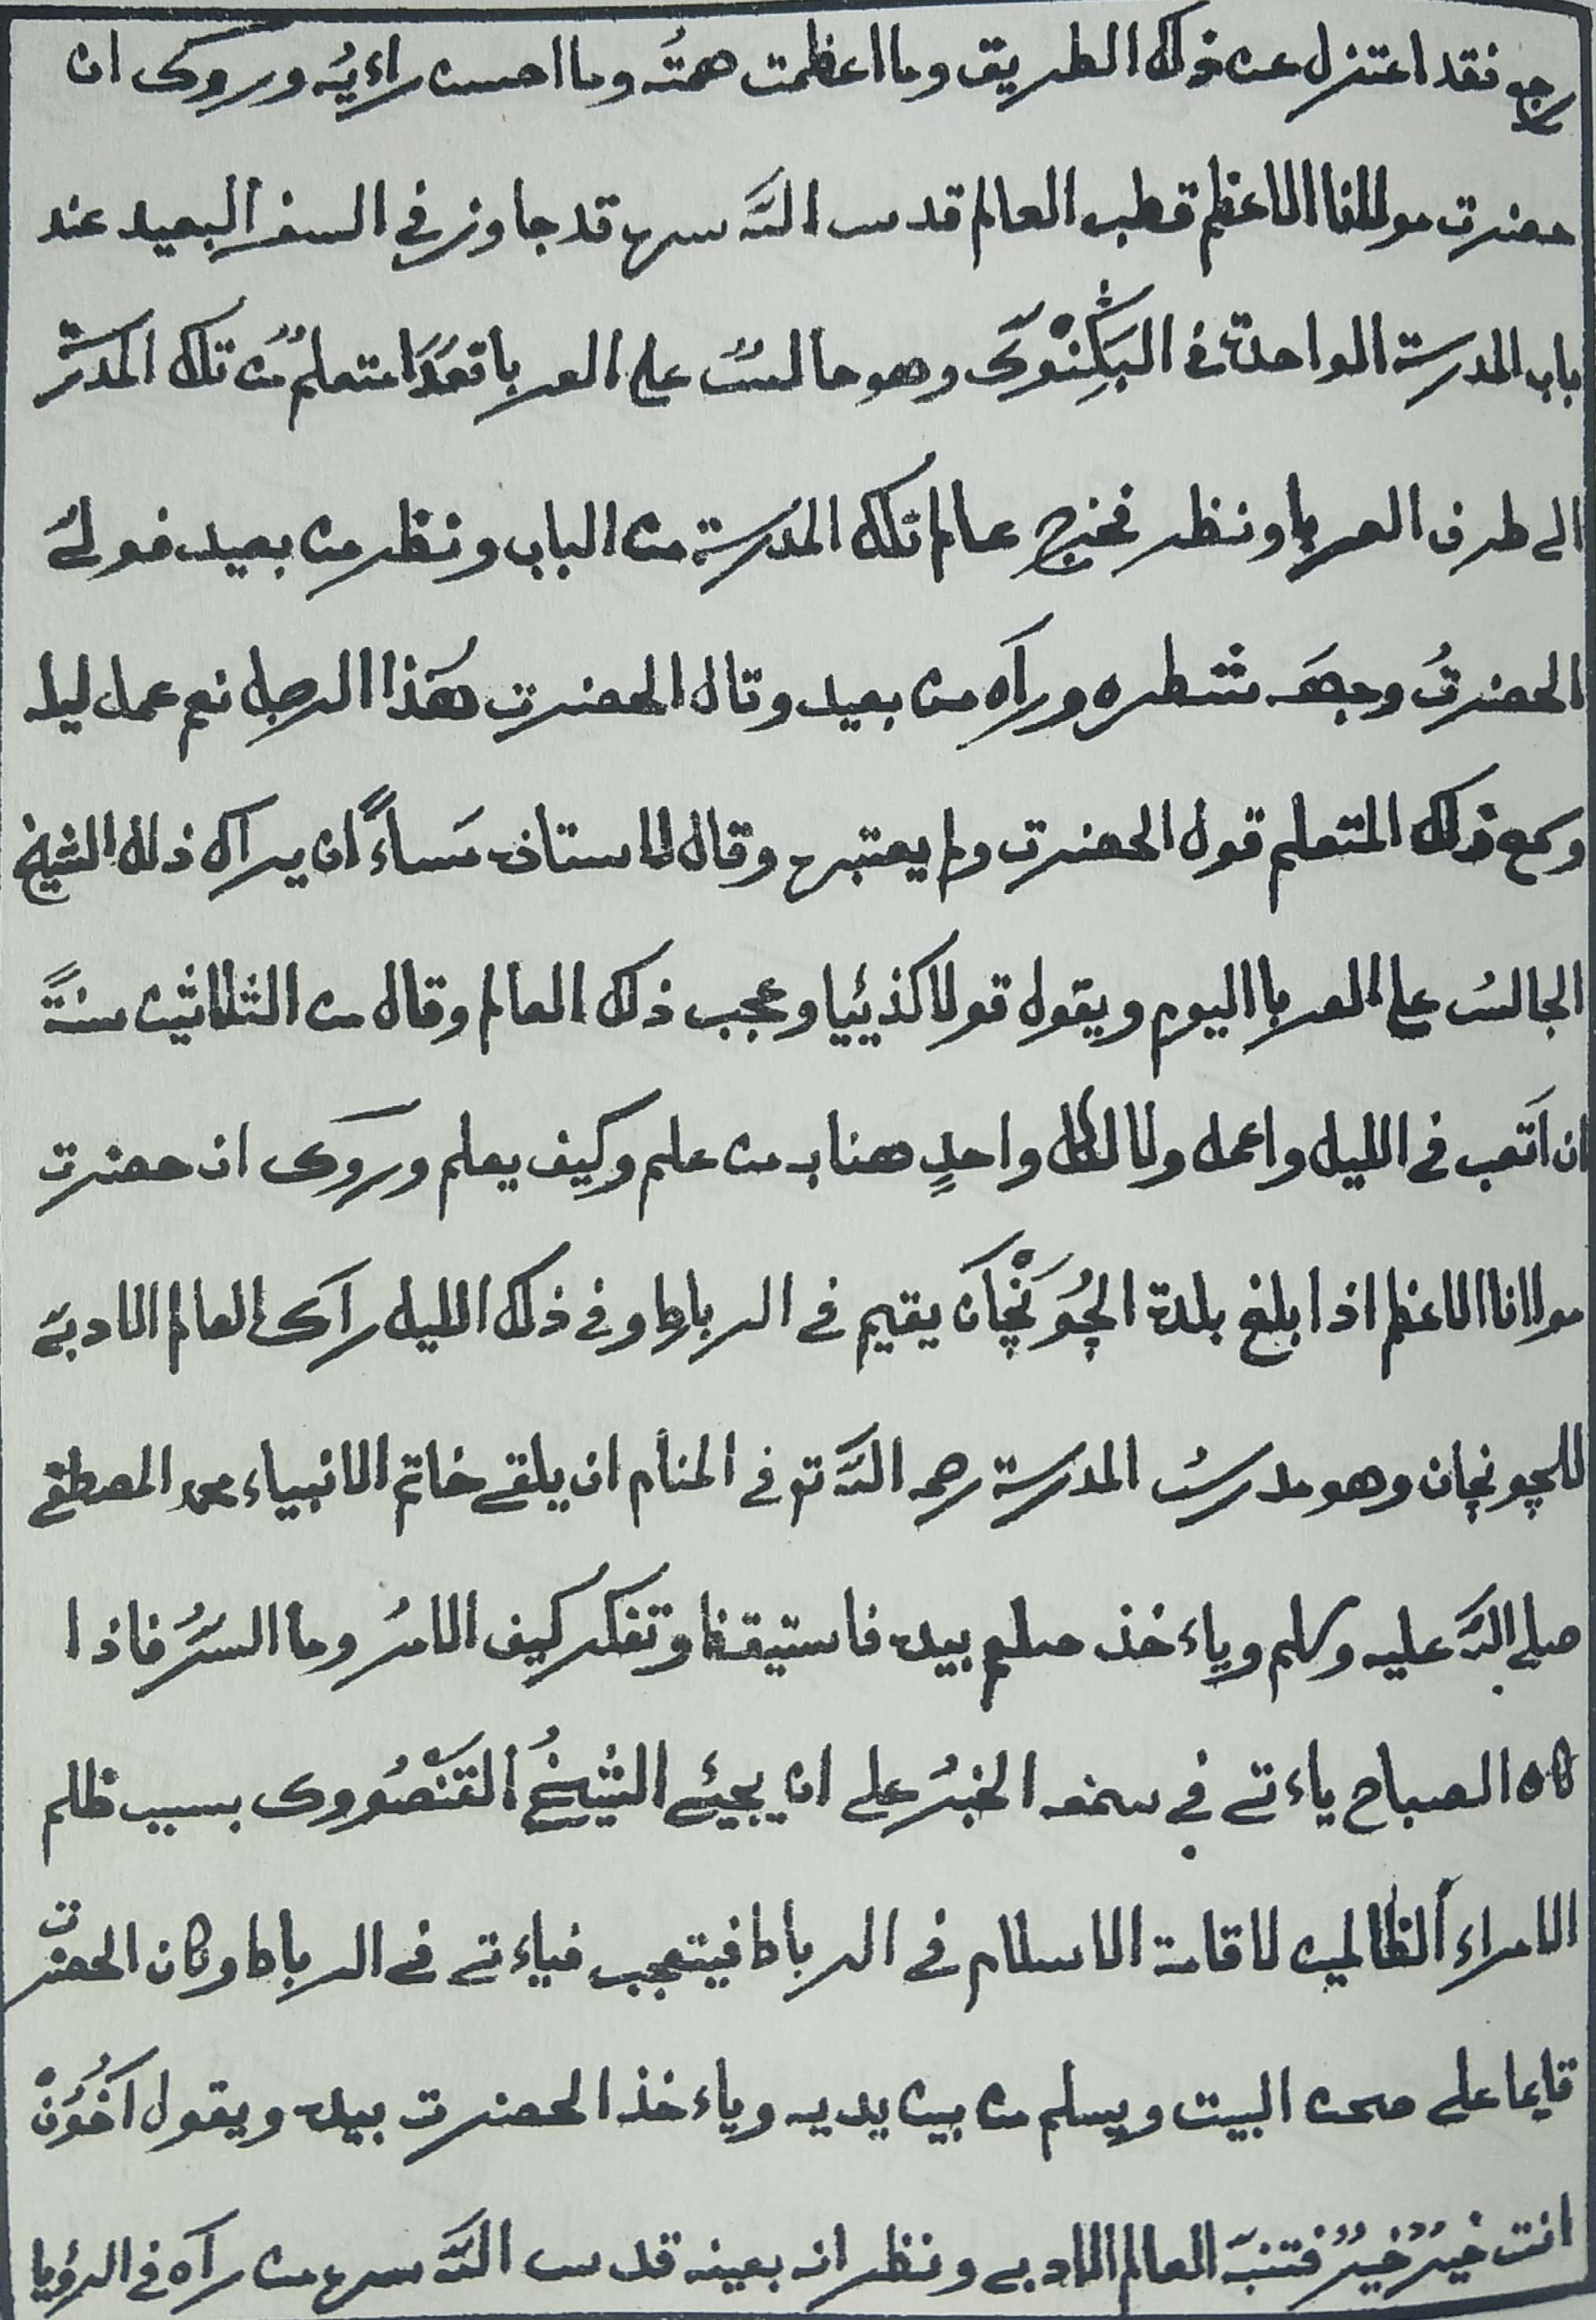 رجہ فقد اعتزل عن ذلك الطريق وما اعظمت همتُه وما احسن راءيُه وروى ان
حضرت مولانا الاعظم قطب العالم قدس اللّه سره قد جاوز في السفر البعيد عند
باب المدرسة الواحدة في البَكِنْوَى وهو جالسٌ على العربا قعدَ متعلمٌ من تلك المدرسة
الى طرف العربا ونظر فخرج عالم تلك المدرسة من الباب ونظر من بعيد فولّى
الحضرتُ وجهَه شطره ورآه من بعيد وقال الحضرت هَذا الرجل نعم عمل ليلا
وسمع ذلك المتعلم قول الحضرت ولم يعتبره وقال للاستاذ مَساءً ان يراك ذلك الشيخ
الجالسُ على العربا اليوم ويقول قولا كذئيا وعجب ذلك العالم وقال من الثلاثين سنةً
ان اَتعب في الليل واعمل ولا لكل واحدٍ هنا به من علم وكيف يعلم وروى ان حضرت
مولانا الاعظم اذا بلغ بلدة الچُوَنْچَان يقيم في الرباط وفي ذلك الليل راَى العالم الادبىّ
للچونچان وهو مدرسُ المدرسة رحمه اللّه تع في المنأم ان يلقى خاتم الانبياء محمد المصطفى
صلى اللّه عليه وسلم وياءخذ صلعم بيده فاستيقظ وتفكر كيف الامرُ وما السّرُّ فاذا
كان الصباح ياءتى في سمعه الخبرُ على ان يجيئى الشيخُ القَنْصُورى بسبب ظلم
الامراء الظالمين لاقامة الاسلام في الرباط فيتعجب فياءتى في الرباط وكان الحضرت
قايما على صحن البيت ويسلم من بين يديه وياءخذ الحضرت بيده ويقول آخُوَنْ
انت خيرٌ خيرٌ فتنبّه العالم الادبى ونظر انه بعينه قدس اللّه سره من رآه في الرؤيا